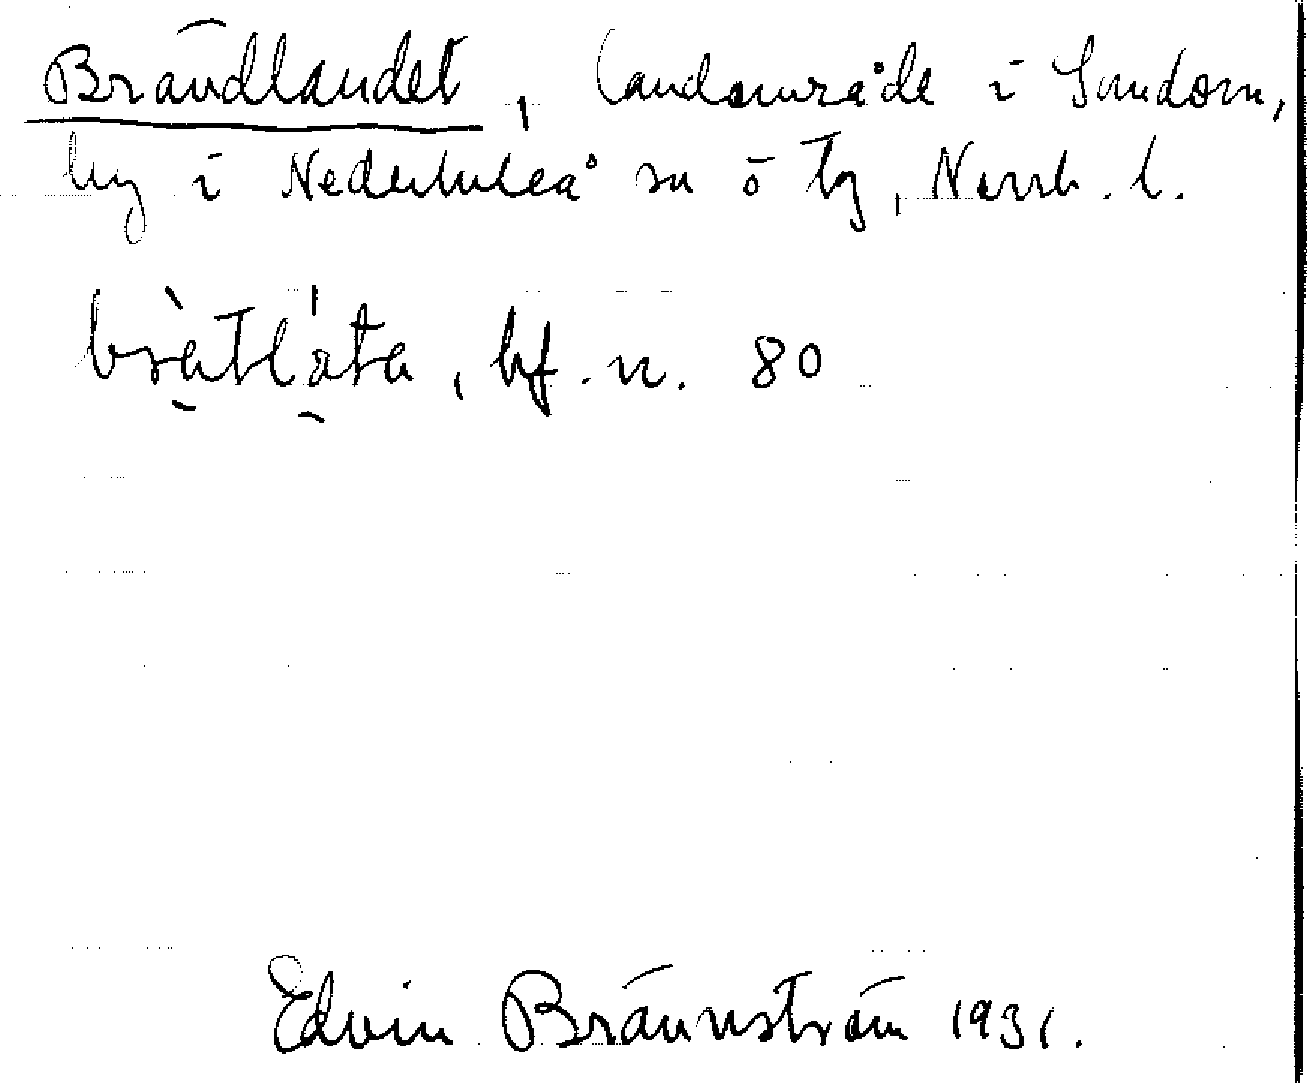 Brändlandet, landområde i Sundom,
by i Nederluleå sn o tg, Norrb. l.
brätlåta, bf. n. 80
Edvin Brännström 1931.